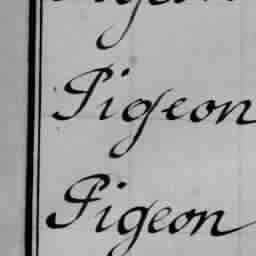 Pigeon
Pigeon